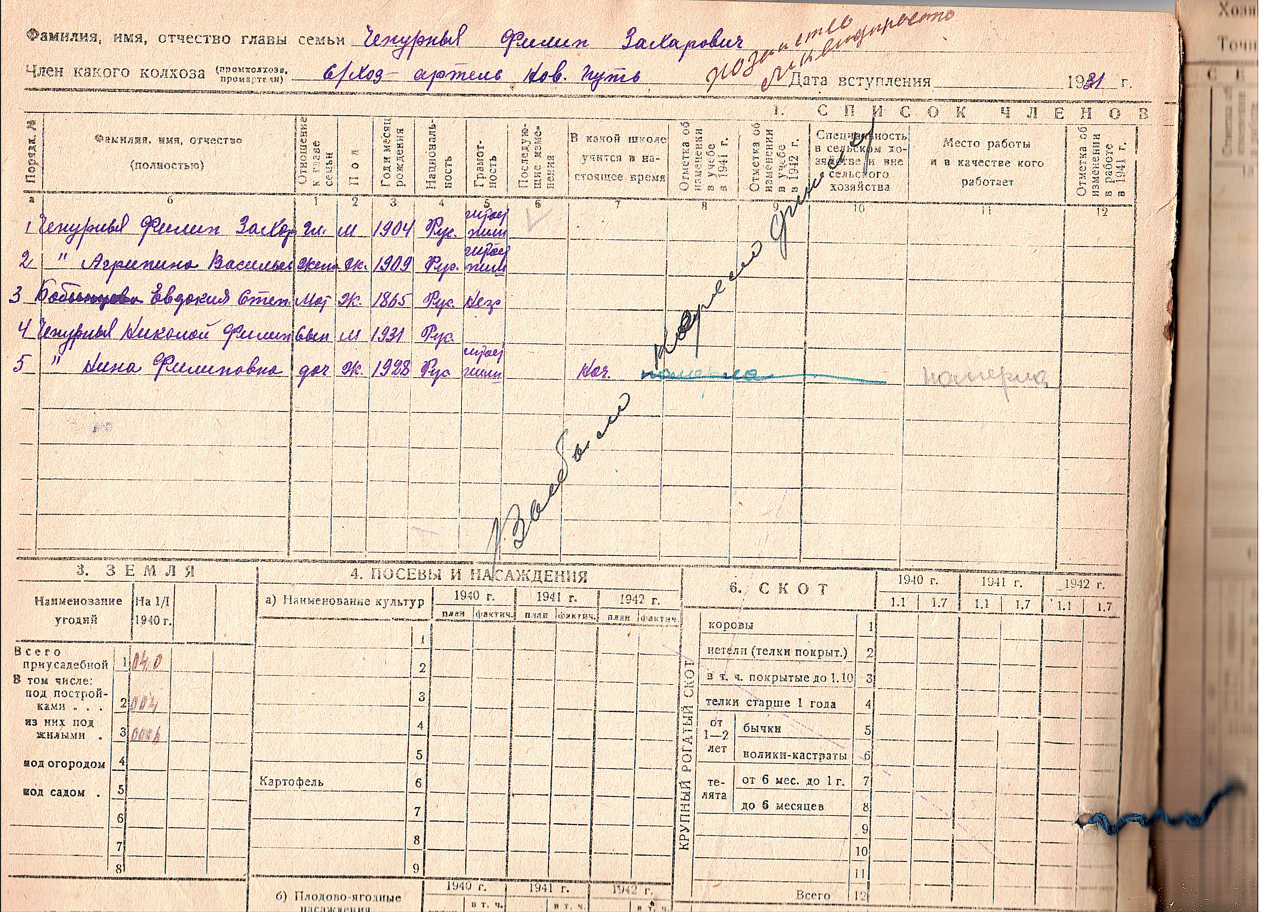 Хозя
Точн
Фамилия, имя, отчество главы семьи Чепурный Филип Захарович
Член какого колхоза (промколхоза, промартели) с/хоз- артель Нов. Путь Дата вступления 1931 г.
1. СПИСОК ЧЛЕНОВ
Порядк. № Фамилия, имя, отчество (полностью) Отношение к главе семьи Пол Год и месяц рождения Националь-ность Грамот-ность Последую-щие изме-нения В какой школе учится в на-стоящее время Отметка об изменении в учебе в 1941 г. Отметка об изменении в учебе в 1942 г. Специальность в сельском хо-зяйстве и вне сельского хозяйства Место работы и в качестве кого работает Отметка об изменении в работе в 1941 г.
а б 1 2 3 4 5 6 7 8 9 10 11 12
1 Чепурный Филип Захар гл. м 1904 Рус.
2 " Агрипина Василье жена ж. 1909 Рус.
3 Евдокия Степ мат ж. 1865 Рус Негр
4 Чепурный Николой Филип сын м 1931 Рус.
5 " Нина Филиповна доч ж. 1928 Рус Нач. померла померла
Выбыли
3. ЗЕМЛЯ
Наименование угодий На 1/I 1940 г.
Всего приусадебной 1 040
В том числе:
под построй-ками . . . 2 004
из них под жилыми . 3
под огородом 4
под садом . 5
6
7
8
4. ПОСЕВЫ И НАСАЖДЕНИЯ
а) Наименование культур 1940 г. 1941 г. 1942 г.
план фактич. план фактич. план фактич.
1
2
3
4
5
Картофель 6
7
8
9
б) Плодово-ягодные насаждения 1940 г. 1941 г. 1942 г.
в т. ч. в т. ч. в т. ч.
6. СКОТ 1940 г. 1941 г. 1942 г.
1.1 1.7 1.1 1.7 1.1 1.7
КРУПНЫЙ РОГАТЫЙ СКОТ
коровы 1
нетели (телки покрыт.) 2
в т. ч. покрытые до 1.10 3
телки старше 1 года 4
от 1—2 лет бычки 5
волики-кастраты 6
те-лята от 6 мес. до 1 г. 7
до 6 месяцев 8
9
10
11
Всего 12